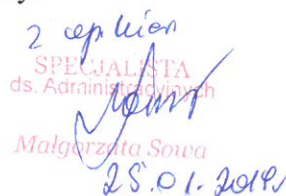 SPECJALISTA
ds. Administracyjnych
Małgorzata Sowa
25.01.2019r